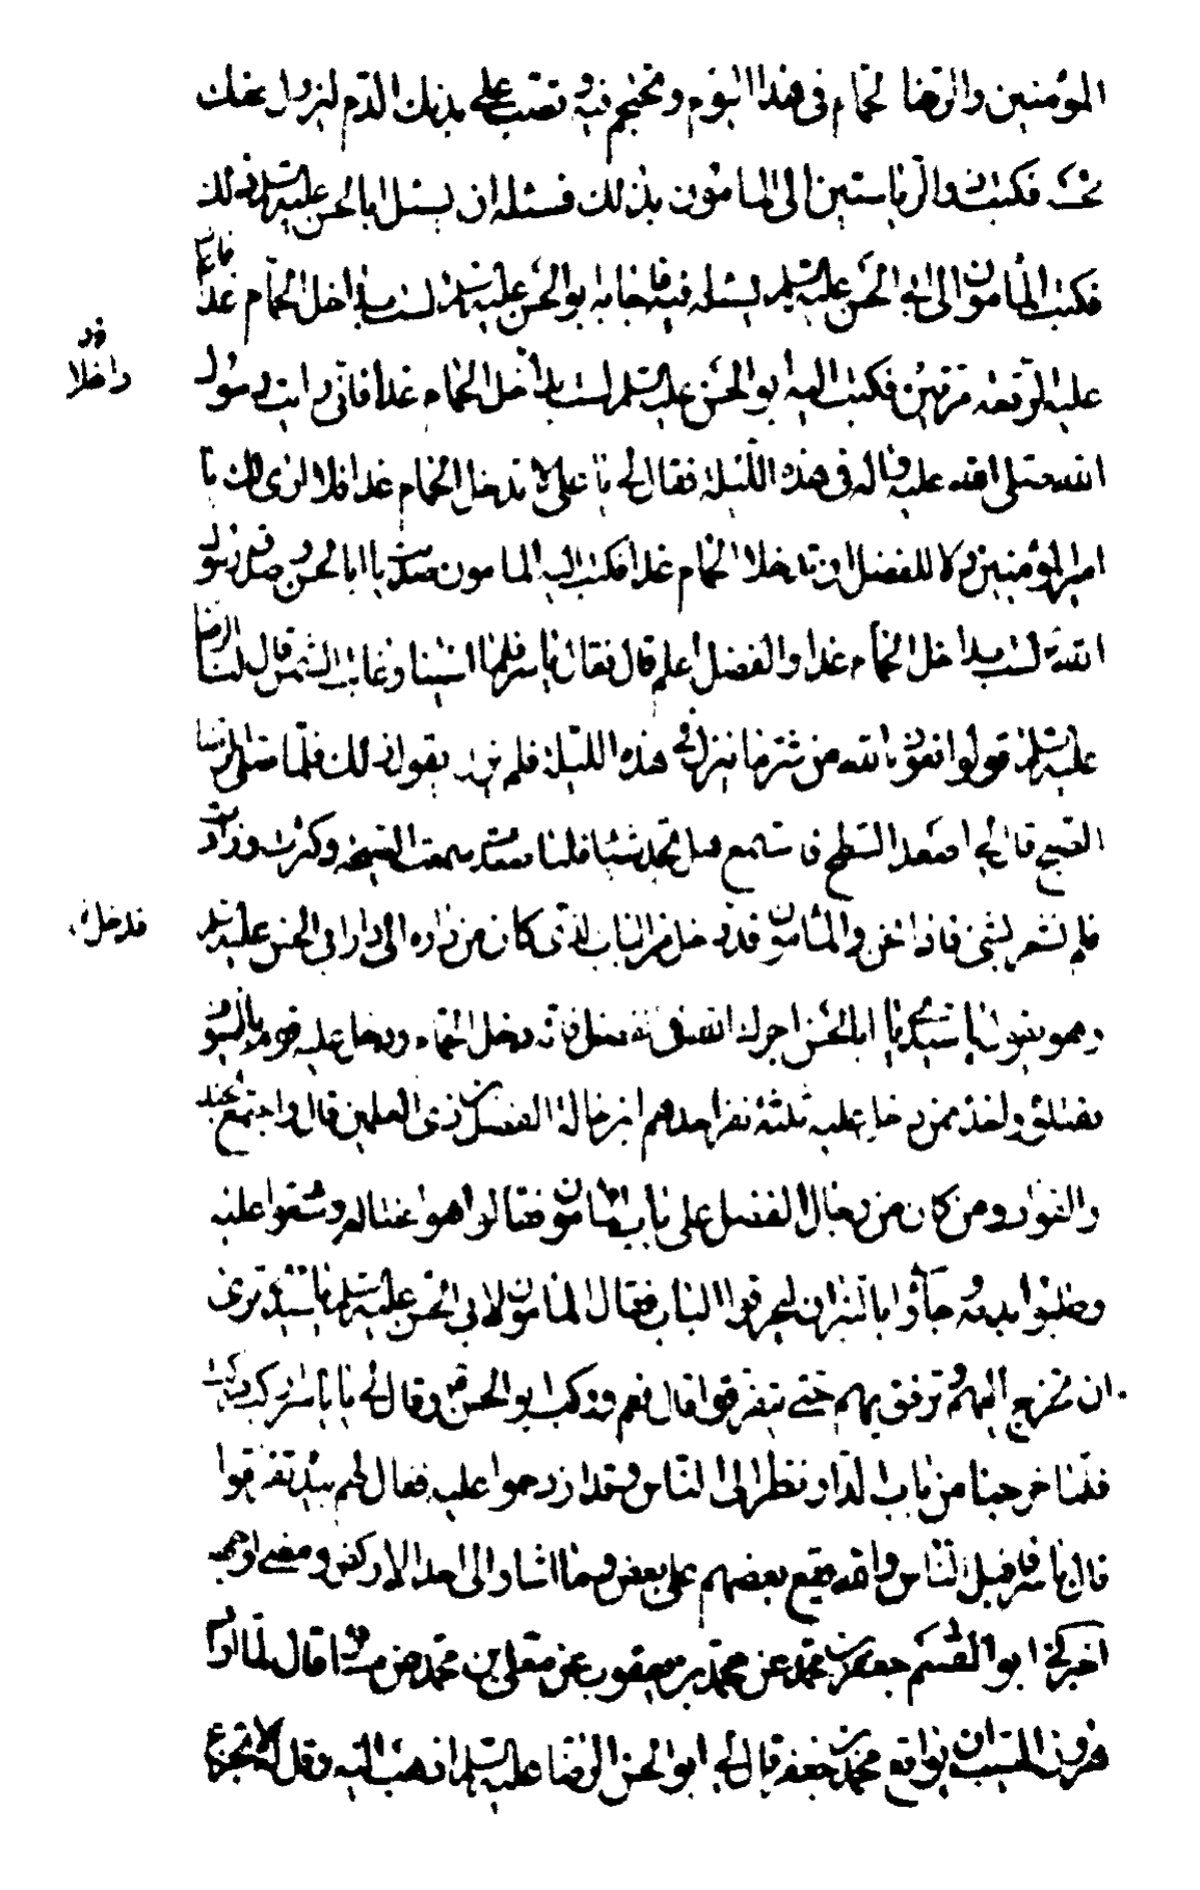 المؤمنين والرضا الحمام في هذا اليوم وتحتجم فيه وتصب على بدنك الدم ليزول عنك
نحسه فكتب ذو الرياستين الى المامون بذلك فسئله ان يسئل ابا الحسن عليه السلم ذلك
فكتب المأمون الى ابى الحسن عليه السلم يسئله فيه فاجابه ابو الحسن عليه السلم لست بداخل الحمام غدا فاعاد
عليه الرقعة مرتين فكتب اليه ابو الحسن عليه السلم لست بداخل الحمام غدا فانى رايت رسول
داخلا
الله صلى الله عليه واله في هذه الليلة فقال لى يا على لا تدخل الحمام غدا فلا ارى لك يا
امير المؤمنين ولا للفضل ان تدخلا الحمام غدا فكتب اليه المامون صدقت يا ابا الحسن وصدق رسول
الله لست بداخل الحمام غدا والفضل اعلم قال فقال ياسر فلما امسينا وغابت الشمس قال لنا الرضا
عليه السلم قولوا نعوذ بالله من شر ما ينزل في هذه الليلة فلم نزل نقول ذلك فلما صلى الرضا
الصبح قال لى اصعد السطح فاستمع هل تجد شيئا فلما صعدت سمعت الضجة وكثرت وزادت
فلم نشعر بشئ فاذا نحن والمامون قد دخل من الباب الذى كان من داره الى دار ابى الحسن عليه السلم
قد دخل
وهو يقول يا سيدى يا ابا الحسن اجرك الله في الفضل فانه دخل الحمام ودخل عليه قوم بالسيوف
فقتلوه واخذ ممن دخل عليه ثلثة نفر احدهم ابن خالة الفضل بن ذى العلمين قال واجتمع الجند
والقواد ومن كان من رجال الفضل على باب المامون فقالوا هو اغتاله وشغبوا عليه
وطلبوا بدمه وجآؤا بالنيران ليحرقوا الباب فقال المامون لابى الحسن عليه السلم يا سيدى ترى
ان تخرج اليهم وترفق بهم حتى يتفرقوا قال نعم وركب ابو الحسن وقال لى يا ياسر اركب فركبت
فلما خرجنا من باب الدار نظر الى الناس وقد ازدحموا عليه فقال لهم بيده تفرقوا
قال ياسر فاقبل الناس والله يقع بعضهم على بعض وما اشار الى احد الا ركض ومضى لوجهه
اخبرنى ابو القسم جعفر بن محمد عن محمد بن يعقوب عن معلى بن محمد عن مسافر قال لما اراد
هرون بن المسيب ان يواقع محمد بن جعفر قال لى ابو الحسن الرضا عليه السلم اذهب اليه وقل له لا تخرج